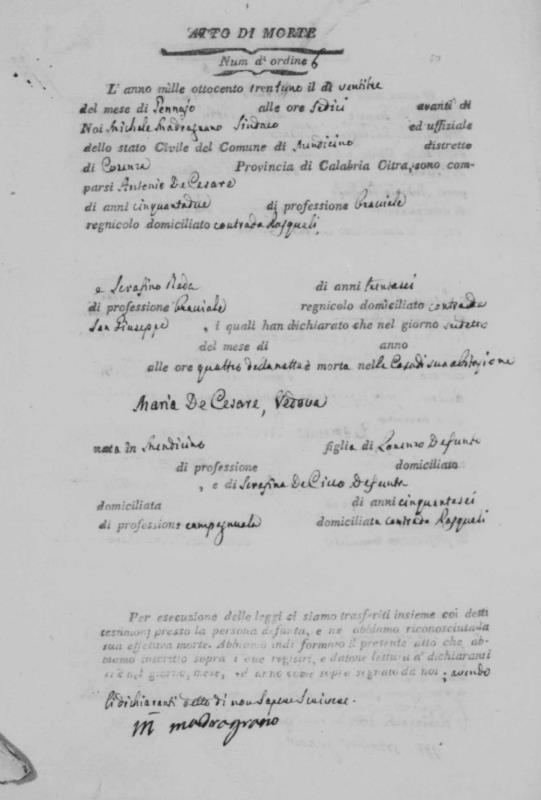 ATTO DI MORTE
Num d' ordine 6
L' anno mille ottocento trentuno il di ventitre
del mese di Gennajo alle ore sedici avanti di
Noi Michele Madragrano Sindaco ed uffiziale
dello stato Civile del Comune di Mendicino distretto
di Cosenza Provincia di Calabria Citra, sono com-
parsi Antonio De Cesare
di anni cinquantadue di professione bracciale
regnicolo domiciliato contrada Pasquali
e Serafino Reda di anni trentasei
di professione bracciale regnicolo domiciliato contrada
San Giuseppe , i quali han dichiarato che nel giorno sudetto
del mese di anno
alle ore quattro della notte è morta nella Casa di sua abitazione
Maria De Cesare, Vedova
nata in Mendicino figlia di Lorenzo Defunto
di professione domiciliato
, e di Serafina De Cicco Defunta
domiciliata di anni cinquantasei
di professione campagnuola domiciliata contrada Pasquali
Per esecuzione delle leggi ci siamo trasferiti insieme coi detti
testimonj presso la persona defunta, e ne abbiamo riconosciuta la
sua effettiva morte. Abbiamo indi formato il presente atto che ab-
biamo inscritto sopra i due registri, e datone lettura a' dichiaranti
si è nel giorno, mese, ed anno come sopra segnato da noi, avendo
li dichiaranti detto di non sapere scrivere.
M Madragrano